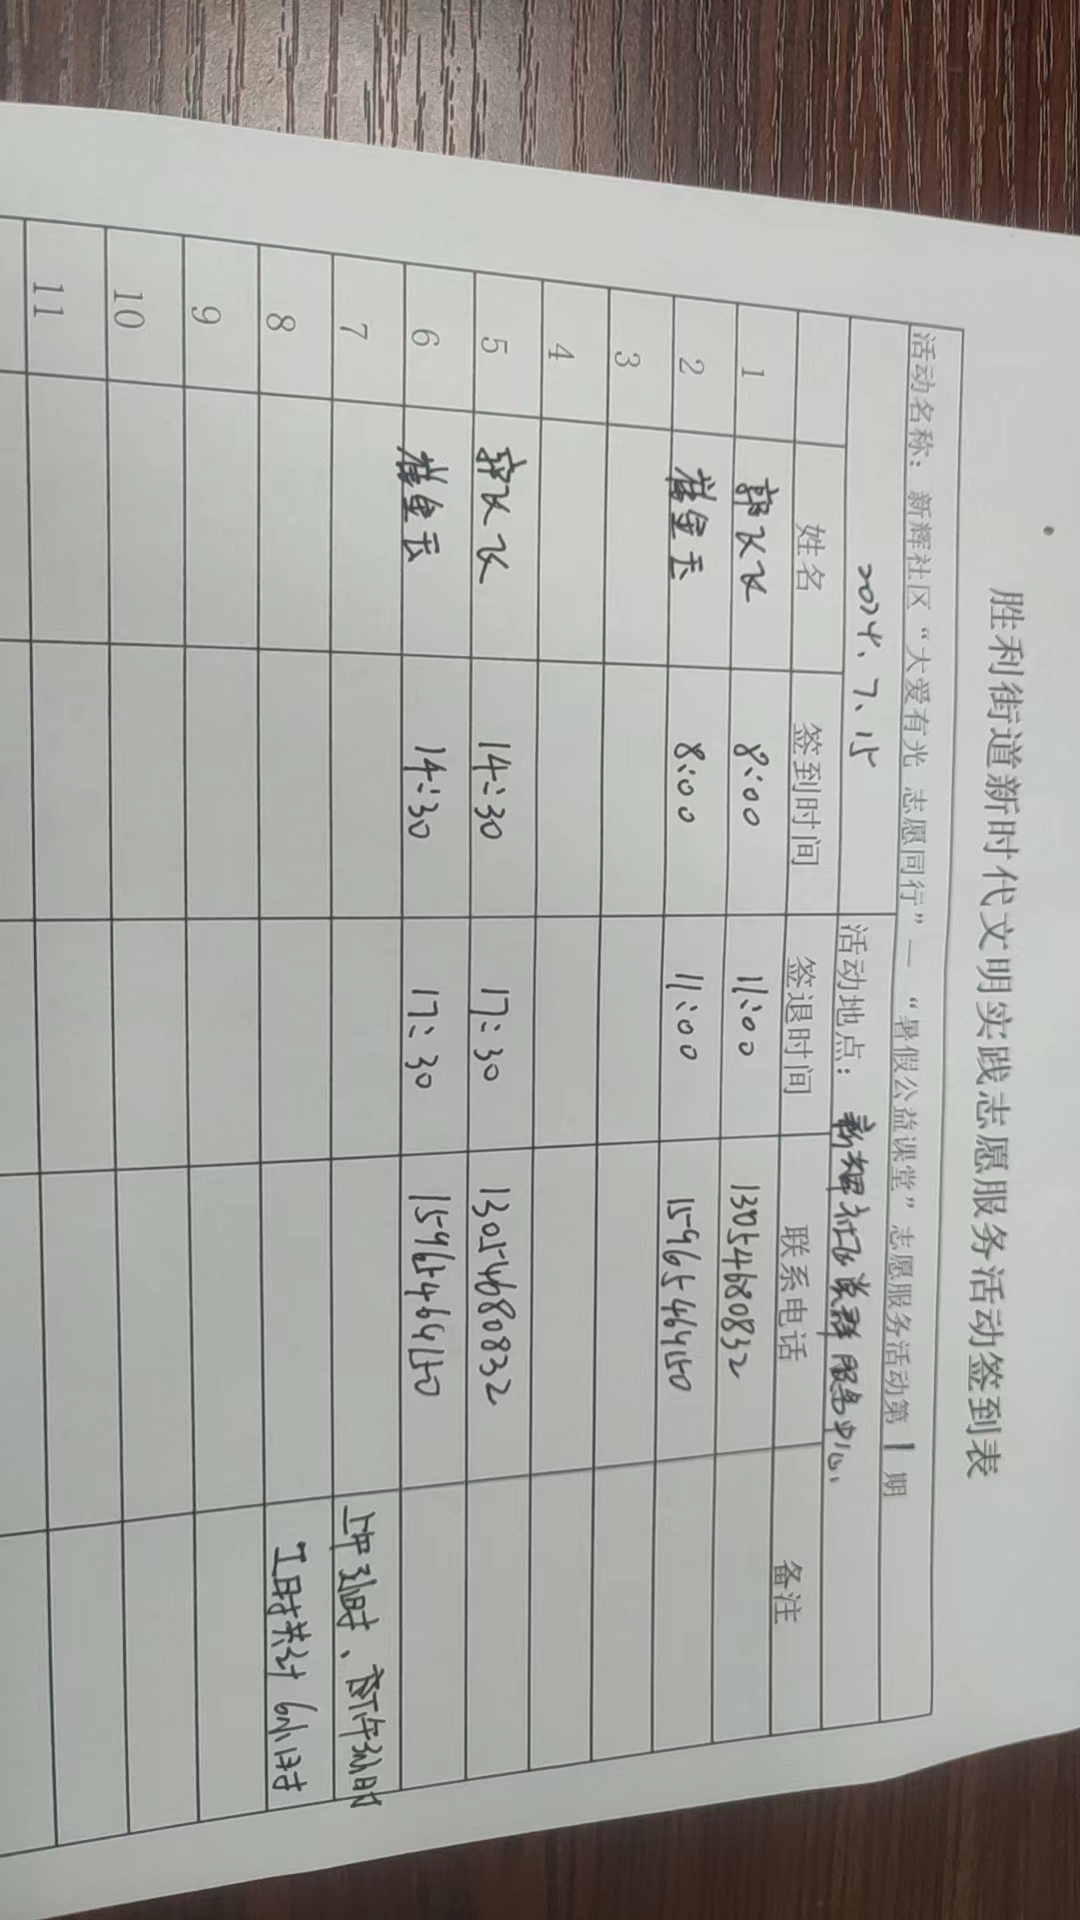 胜利街道新时代文明实践志愿服务活动签到表
活动名称：新辉社区“大爱有光 志愿同行”—“暑假公益课堂”志愿服务活动第1期
2024、7、15 活动地点：新辉社区党群服务中心
姓名 签到时间 签退时间 联系电话 备注
1 郭飞飞 8:00 11:00 13054680832
2 崔金玉 8:00 11:00 15965464150
3
4
5 郭飞飞 14:30 17:30 13054680832
6 崔金玉 14:30 17:30 15965464150
7 上午3小时、下午3小时
8 工时共计6小时
9
10
11